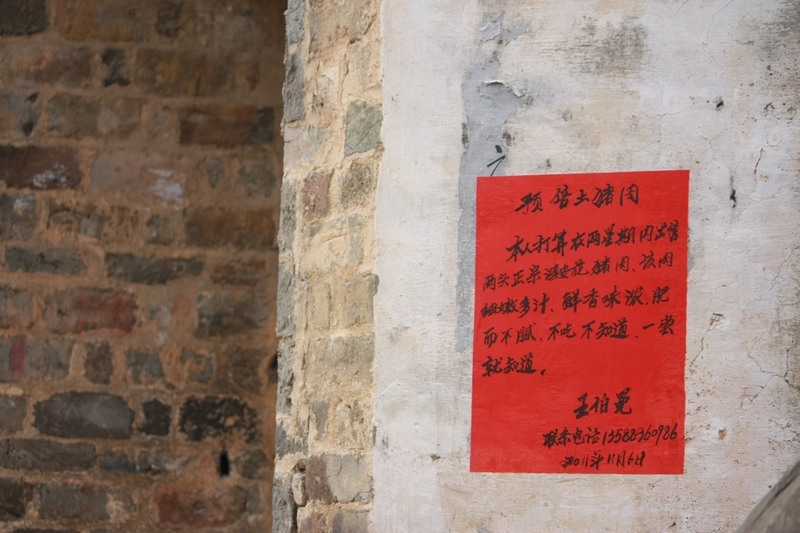 预售土猪肉
本人打算在两星期内出售
两头正宗淳安花猪肉、该肉
细嫩多汁、鲜香味浓、肥
而不腻,不吃不知道,一尝
就知道。
王伯
联系电话13588360986
2011年11月6日